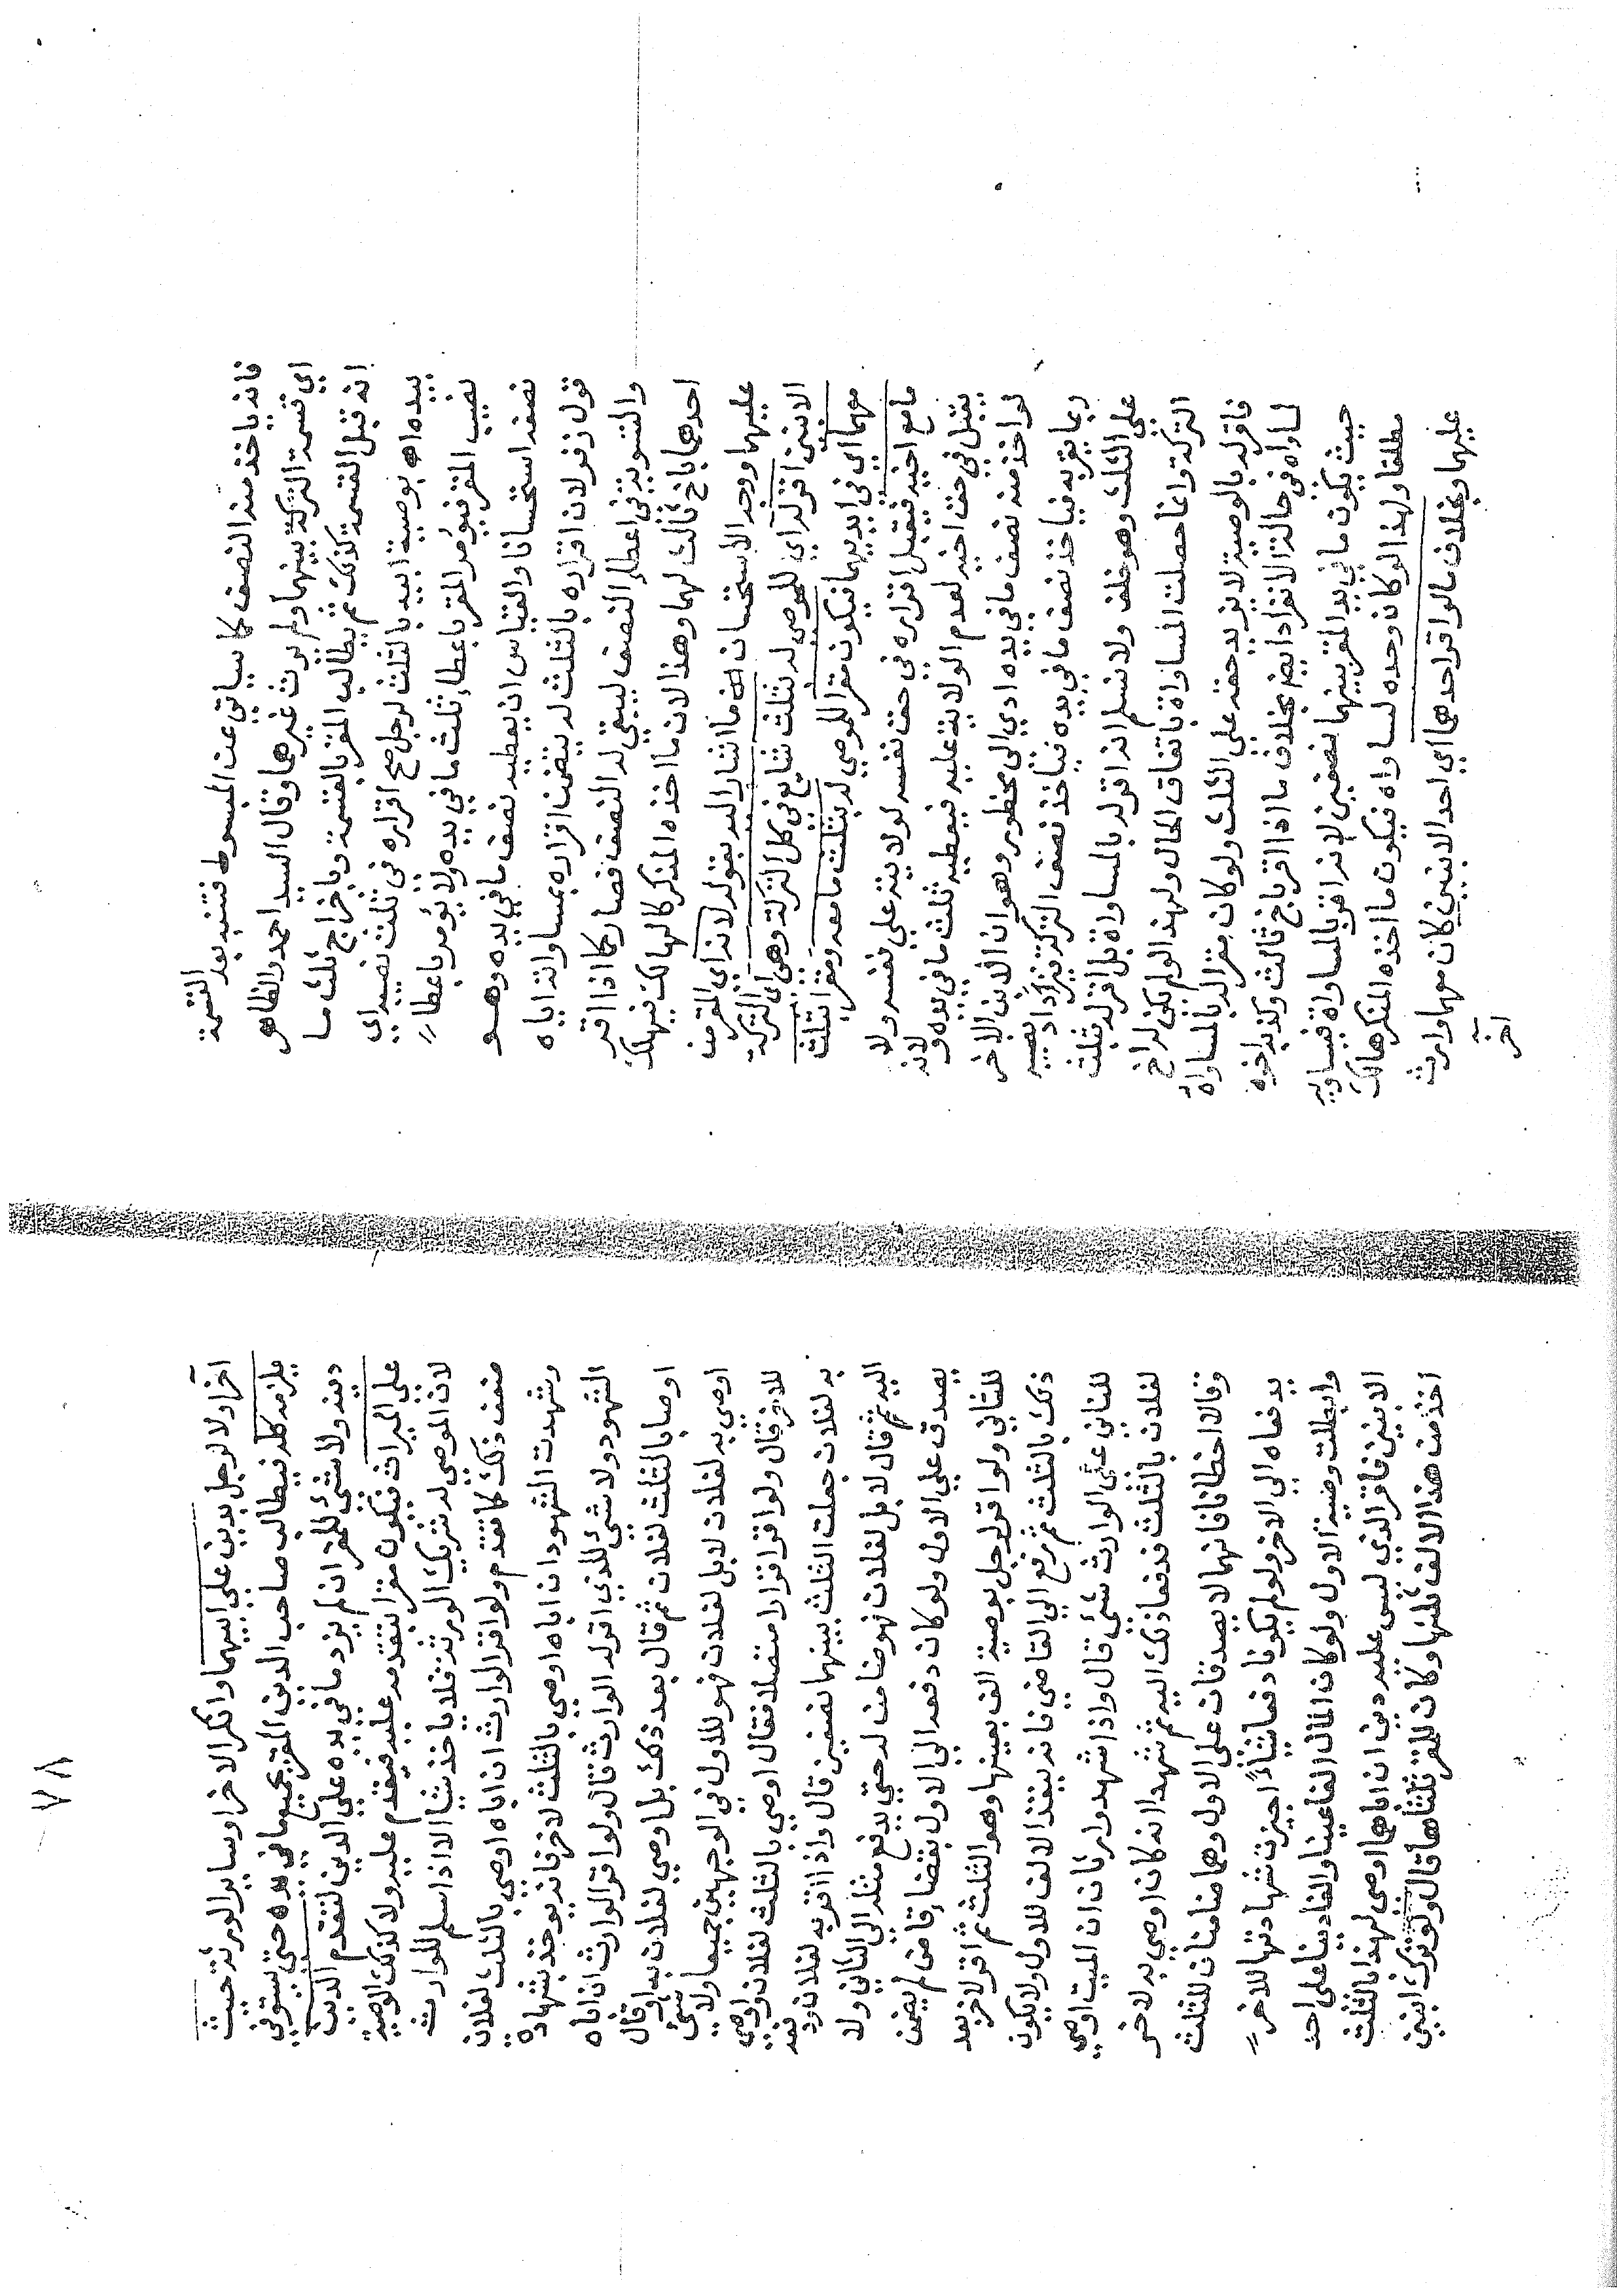 فانه ياخذ منه النصف كما سياتي عن المبسوط فتنبه بعد القسمة
اي قسمة التركة بينهما ولم يورث غيرهما وقال السيد احمد والظاهر
انه قبل القسمة كذلك ثم يطالب المقر بالقسمة وباخراج ثلث ما
بيده اه بوصية ابيه بالثلث لرجل صح اقراره في ثلث نصيبه اي
نصيب المقر فيؤمر المقر باعطاء ثلث ما في يده ولا يؤمر باعطاء
نصفه استحسانا والقياس ان يعطيه نصف ما في يده وهو
قول زفر لان اقراره بالثلث له يتضمن اقراره بمساواته اياه
والتسوية في اعطاء النصف ليبقي له النصف فصار كما اذا اقر
احدهما باخ ثالث لهما وهذا لان ما اخذه المنكر كالهالك فيهلك
عليهما ووجه الاستحسان ما اشار اليه بقوله لانه اي المقر من
الابنين اقر له اي للموصى له بثلث شايع في كل التركة وهي اي التركة
معهما اي في ايديهما فيكون مقرا للموصي له بثلث ما معه ومقرا بثلث
ما مع اخيه فيقبل اقراره في حق نفسه لولايته علي نفسه ولا
يقبل في حق اخيه لعدم الولاية عليه فيعطيه ثلث ما في يده ولانه
لو اخذ منه نصف ما في يده ادي الى محظور وهو ان الابن الاخر
ربما يقر به فياخذ نصف ما في يده فياخذ نصف التركة فيزداد نصيبه
علي الثلث وهو خلف ولا نسلم انه اقر له بالمساواة بل اقر له بثلث
التركة وانما حصلت المساواة باتفاق الحال ولهذا لو لم يكن له اخ
فاقر له بالوصية لا يزيد حقه علي الثلث ولو كان مقرا له بالمساواة
لساواه في حالة الانفراد ايضا بخلاف ما اذا اقر باخ ثالث وكذبه اخوه
حيث يكون ما في يد المقر بينهما نصفين لانه اقر بالمساواة فيساويه
مطلقا ولهذا لو كان وحده لساواه فيكون ما اخذه المنكر هالك
عليهما وبخلاف ما لو اقر احدهما اي احد الابنين كان معهما وارث
آخر
٧٨
آخر اولا لرجل بدين علي ابيهما وانكر الاخر او ساير الورثة حيث
يلزمه كله فيطالب صاحب الدين المقر بجميع ما في يده حتي يستوفي
دينه ولا شئ للمقر ان لم يزد ما في يده علي الدين لتقدم الدين
علي الميراث فيكون مقرا بتقدمه عليه فيقدم عليه ولا كذلك الوصية
لان الموصى له شريك الورثة فلا ياخذ شيا الا اذا سلم للوارث
ضعف ذلك كما تقدم ولو اقر الوارث ان اباه اوصي بالثلث لفلان
وشهدت الشهود ان اباه اوصي بالثلث لاخر فانه يوخذ بشهادة
الشهود ولا شي للذي اقر له الوارث قال ولو اقر الوارث ان اباه
اوصا بالثلث لفلان ثم قال بعد ذلك بل اوصي لفلان به او قال
اوصي به لفلان لا بل لفلان فهو للاول في الوجهين جميعا ولا شئ
للاخر قال ولو اقر اقرارا متصلا فقال اوصي بالثلث لفلان واوصي
به لفلان جعلت الثلث بينهما نصفين قال واذا اقر به لفلان ودفعه
اليه ثم قال لا بل لفلان فهو ضامن له حتي يدفع مثله الى الثاني ولا
يصدق علي الاول ولو كان دفعه الي الاول بقضاء قاض لم يضمن
للثاني ولو اقر لرجل بوصية الف بعينها وهو الثلث ثم اقر لاخر بعد
ذلك بالثلث ثم رفع الي القاضي فانه ينفذ الالف للاول ولا يكون
للثاني علي الوارث شئ قال واذا شهد وارثان ان الميت اوصي
لفلان بالثلث فدفعا ذلك اليه ثم شهدا انه كان اوصي به لاخر
وقالا اخطانا فانهما لا يصدقان على الاول وهما ضامنان للثلث
يدفعاه الي الاخر ولو لم يكونا دفعا شيأ اجيزت شهادتهما للاخر
وابطلت وصية الاول ولو كان المال الفا عينا والفا دينا على احد
الابنين فاقر الذي ليس عليه دين ان اباهما اوصى لهذا بالثلث
اخذ من هذا الالف ثلثها وكان للمقر ثلثاها قال ولو ترك ابنين